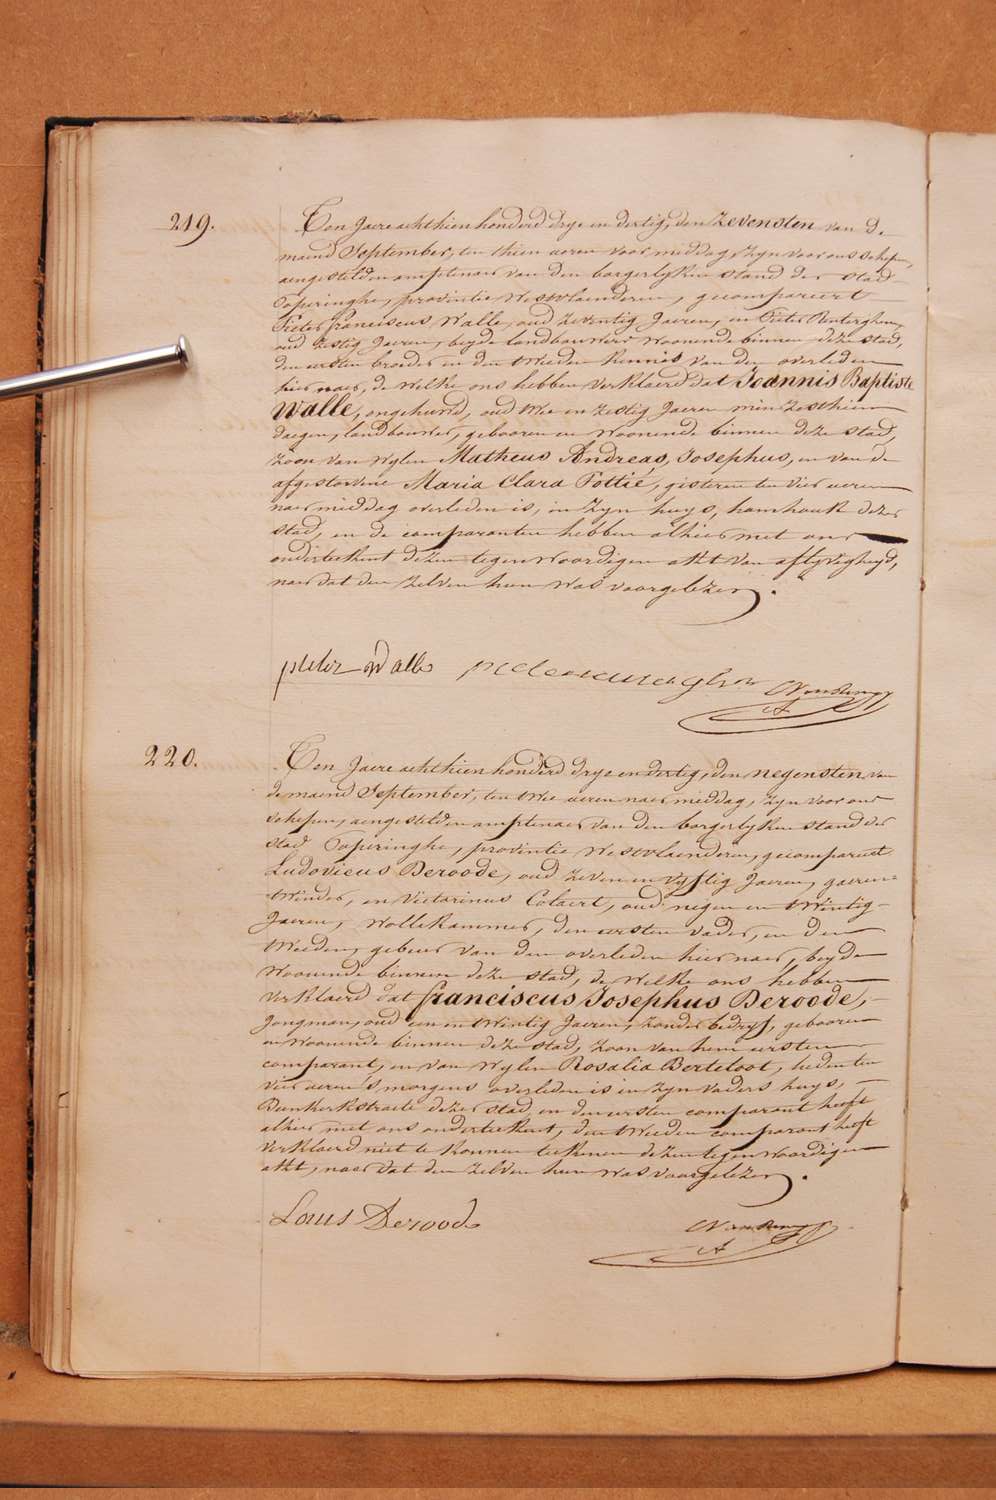 219.
Ten Jaere achthien honderd drye en dertig, den zevensten van d.
maend September, ten thien ueren voor middag, Zyn voor ons schepen,
aengestelden amptenaer van den borgerlyken stand der stad
Poperinghe, provintie Westvlaenderen, gecompareert
Pieter franciscus Walle, oud zeventig Jaeren, en Pieter Renterghem,
oud zestig Jaeren, beyde landbouwers woonende binnen deze stad,
den eersten broeder en den tweeden kennis van den overleden
hier naer, de welke ons hebben verklaerd dat Joannis Baptiste
Walle, ongehuwd, oud twee en zestig Jaeren min zesthien
daegen, landbouwer, gebooren en woonende binnen deze stad,
zoon van wylen Matheus Andreas, Josephus, en van de
afgestorvene Maria Clara Tottié, gisteren ten vier ueren
naer middag overleden is, in zyn huys, hamhoek dezer
stad, en de comparanten hebben alhier met ons
onderteekent dezen tegenwoordigen akt van aflyvigheyd,
naer dat den zelven hun was voorgelezen.
pieter Walle
220.
Ten Jaere achthien honderd drye en dertig, den negensten van
de maend September, ten twee ueren naer middag, zyn voor ons
schepen, aengestelden amptenaer van den borgerlyken stand der
stad Poperinghe, provintie Westvlaenderen, gecompareert
Ludovicus Deroode, oud zeven en vyftig Jaeren, gaeren-
twinder, en Victorinus Colaert, oud negen en twintig
Jaeren, wollekammer, den eersten vader, en den
tweeden, gebuer van den overleden hier naer, beyde
woonende binnen deze stad, de welke ons hebben
verklaerd dat franciscus Josephus Deroode,
Jongman, oud een en twintig Jaeren, zonder bedryf, gebooren
en woonende binnen deze stad, zoon van hem eersten
comparant, en van wylen Rosalia Berteloot, heden ten
vier ueren 's morgens overleden is in zyn vaders huys,
Dunkerkstraete dezer stad, en den eersten comparant heeft
alhier met ons onderteekent, den tweeden comparant heeft
verklaerd niet te konnen teekenen dezen tegenwoordigen
akt, naer dat den zelven hun was voorgelezen.
Louis Deroode